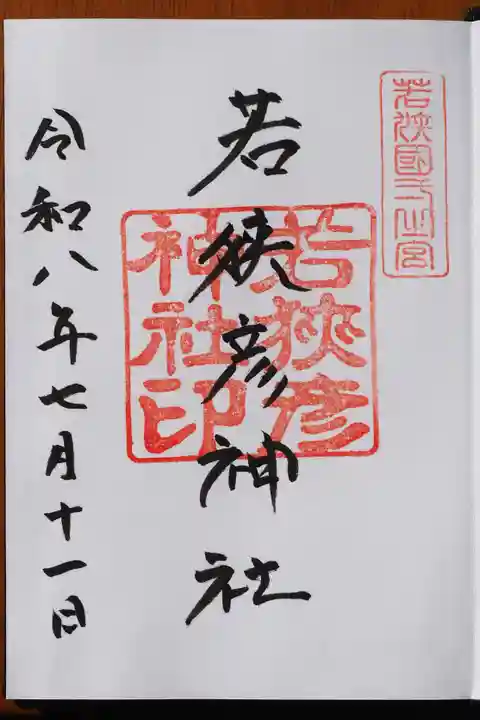 若狭國一之宮
若狭彦神社
若狭彦
神社印
令和八年七月十一日